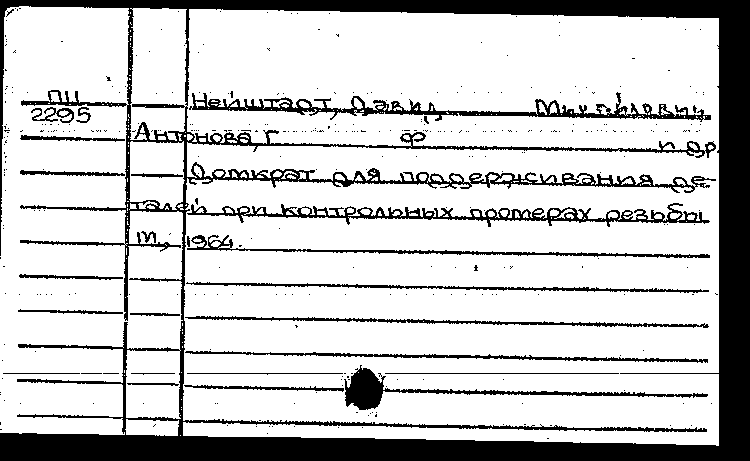 ПП
2295
Нейштарт, Давид Михайлович,
Антонова, Г. Ф. и др.
Домкрат для поддерживания де-
талей при контрольных промерах резьбы
М., 1964.